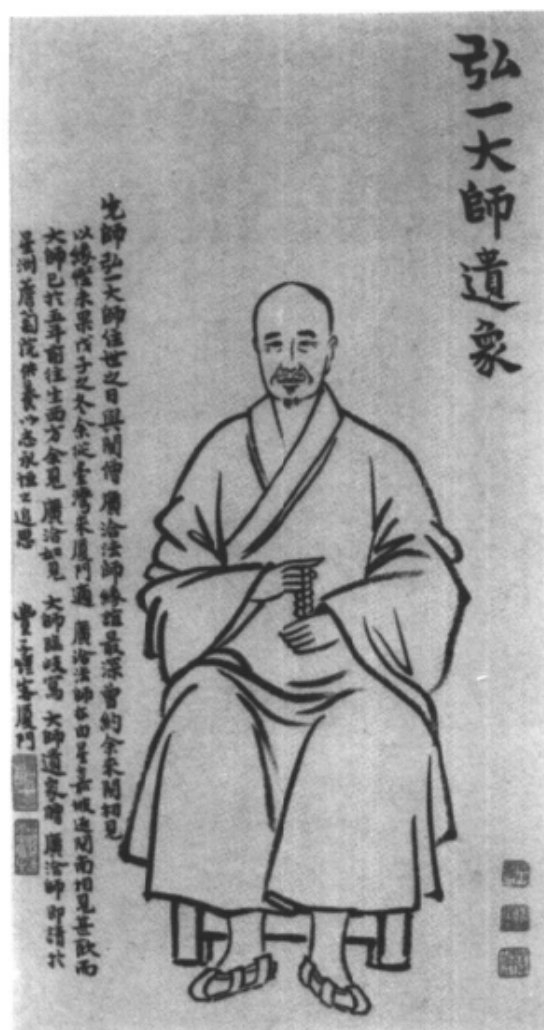 弘一大師遺象
先師弘一大師住世之日與閩僧 廣洽法師緣誼最深曾約余來閩相見
以緣慳未果戊子之冬余從臺灣來廈門適 廣洽法師亦由星嘉坡返閩南相見甚歡而
大師已於五年前往生西方余見 廣洽如見 大師臨歧寫 大師遺象贈 廣洽師即請於
星洲薝蔔院供養以志永恒之追思 豐子愷客廈門